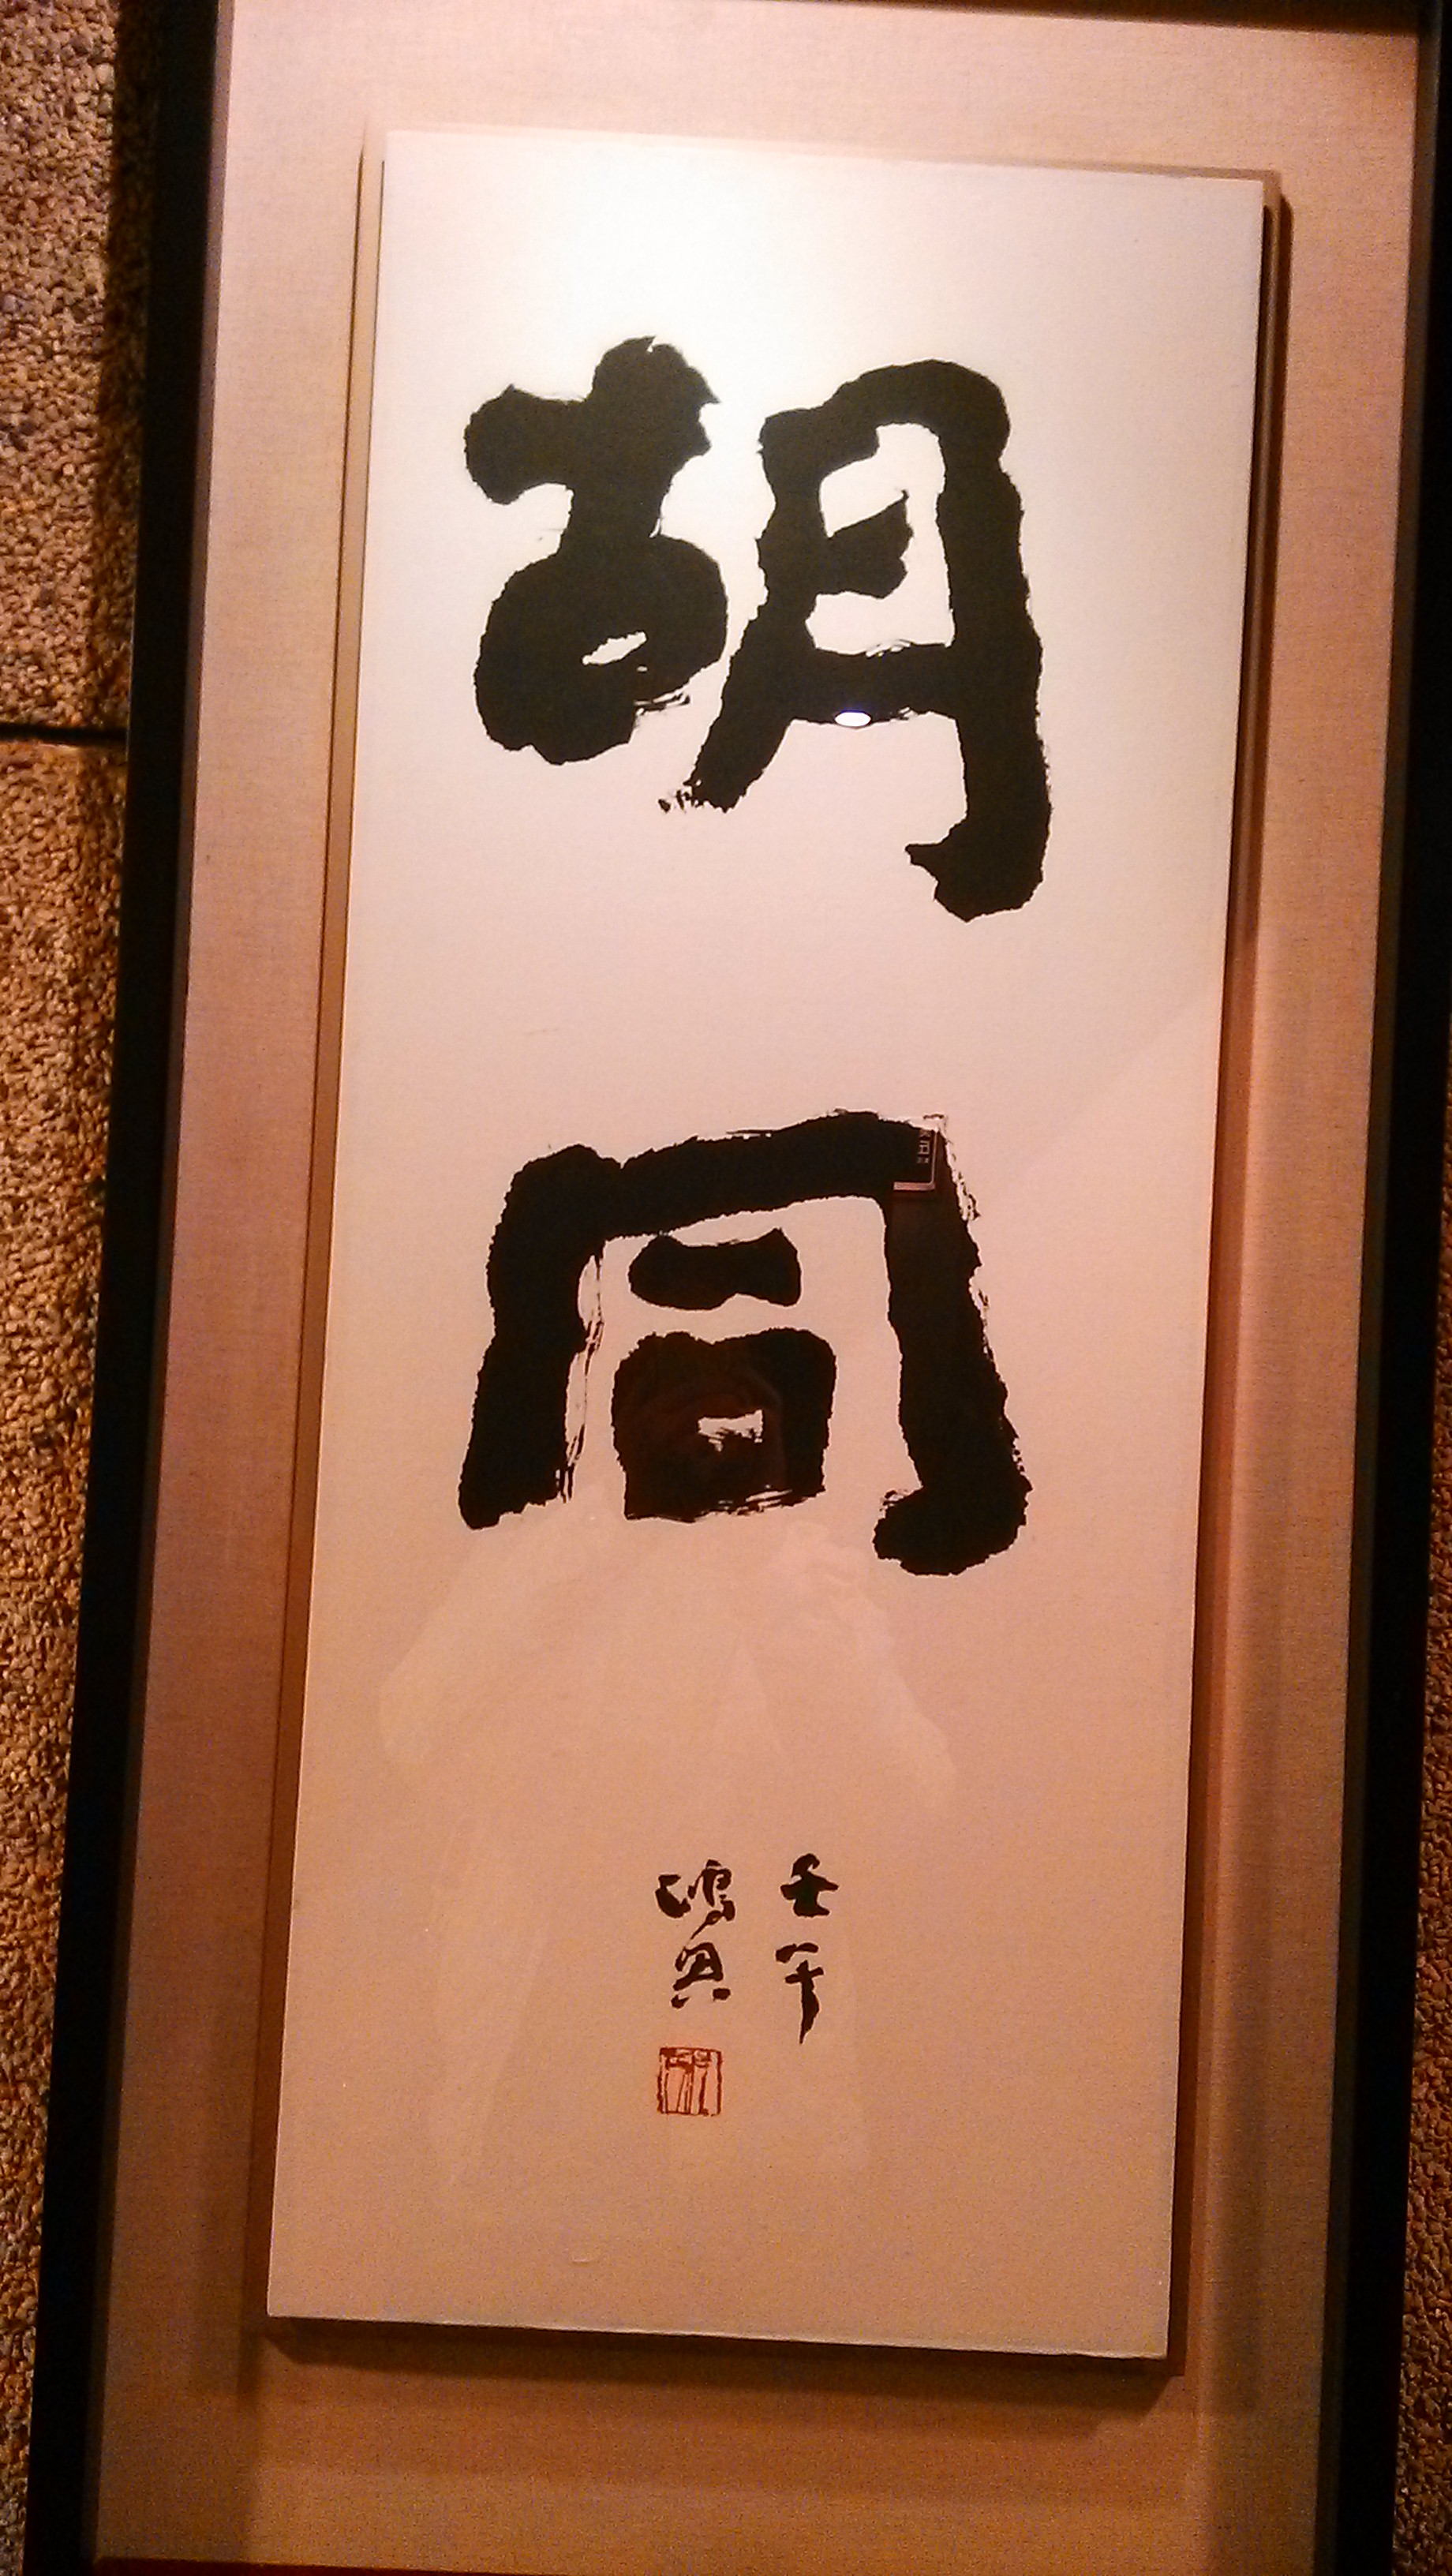 胡同
壬午
鴻興